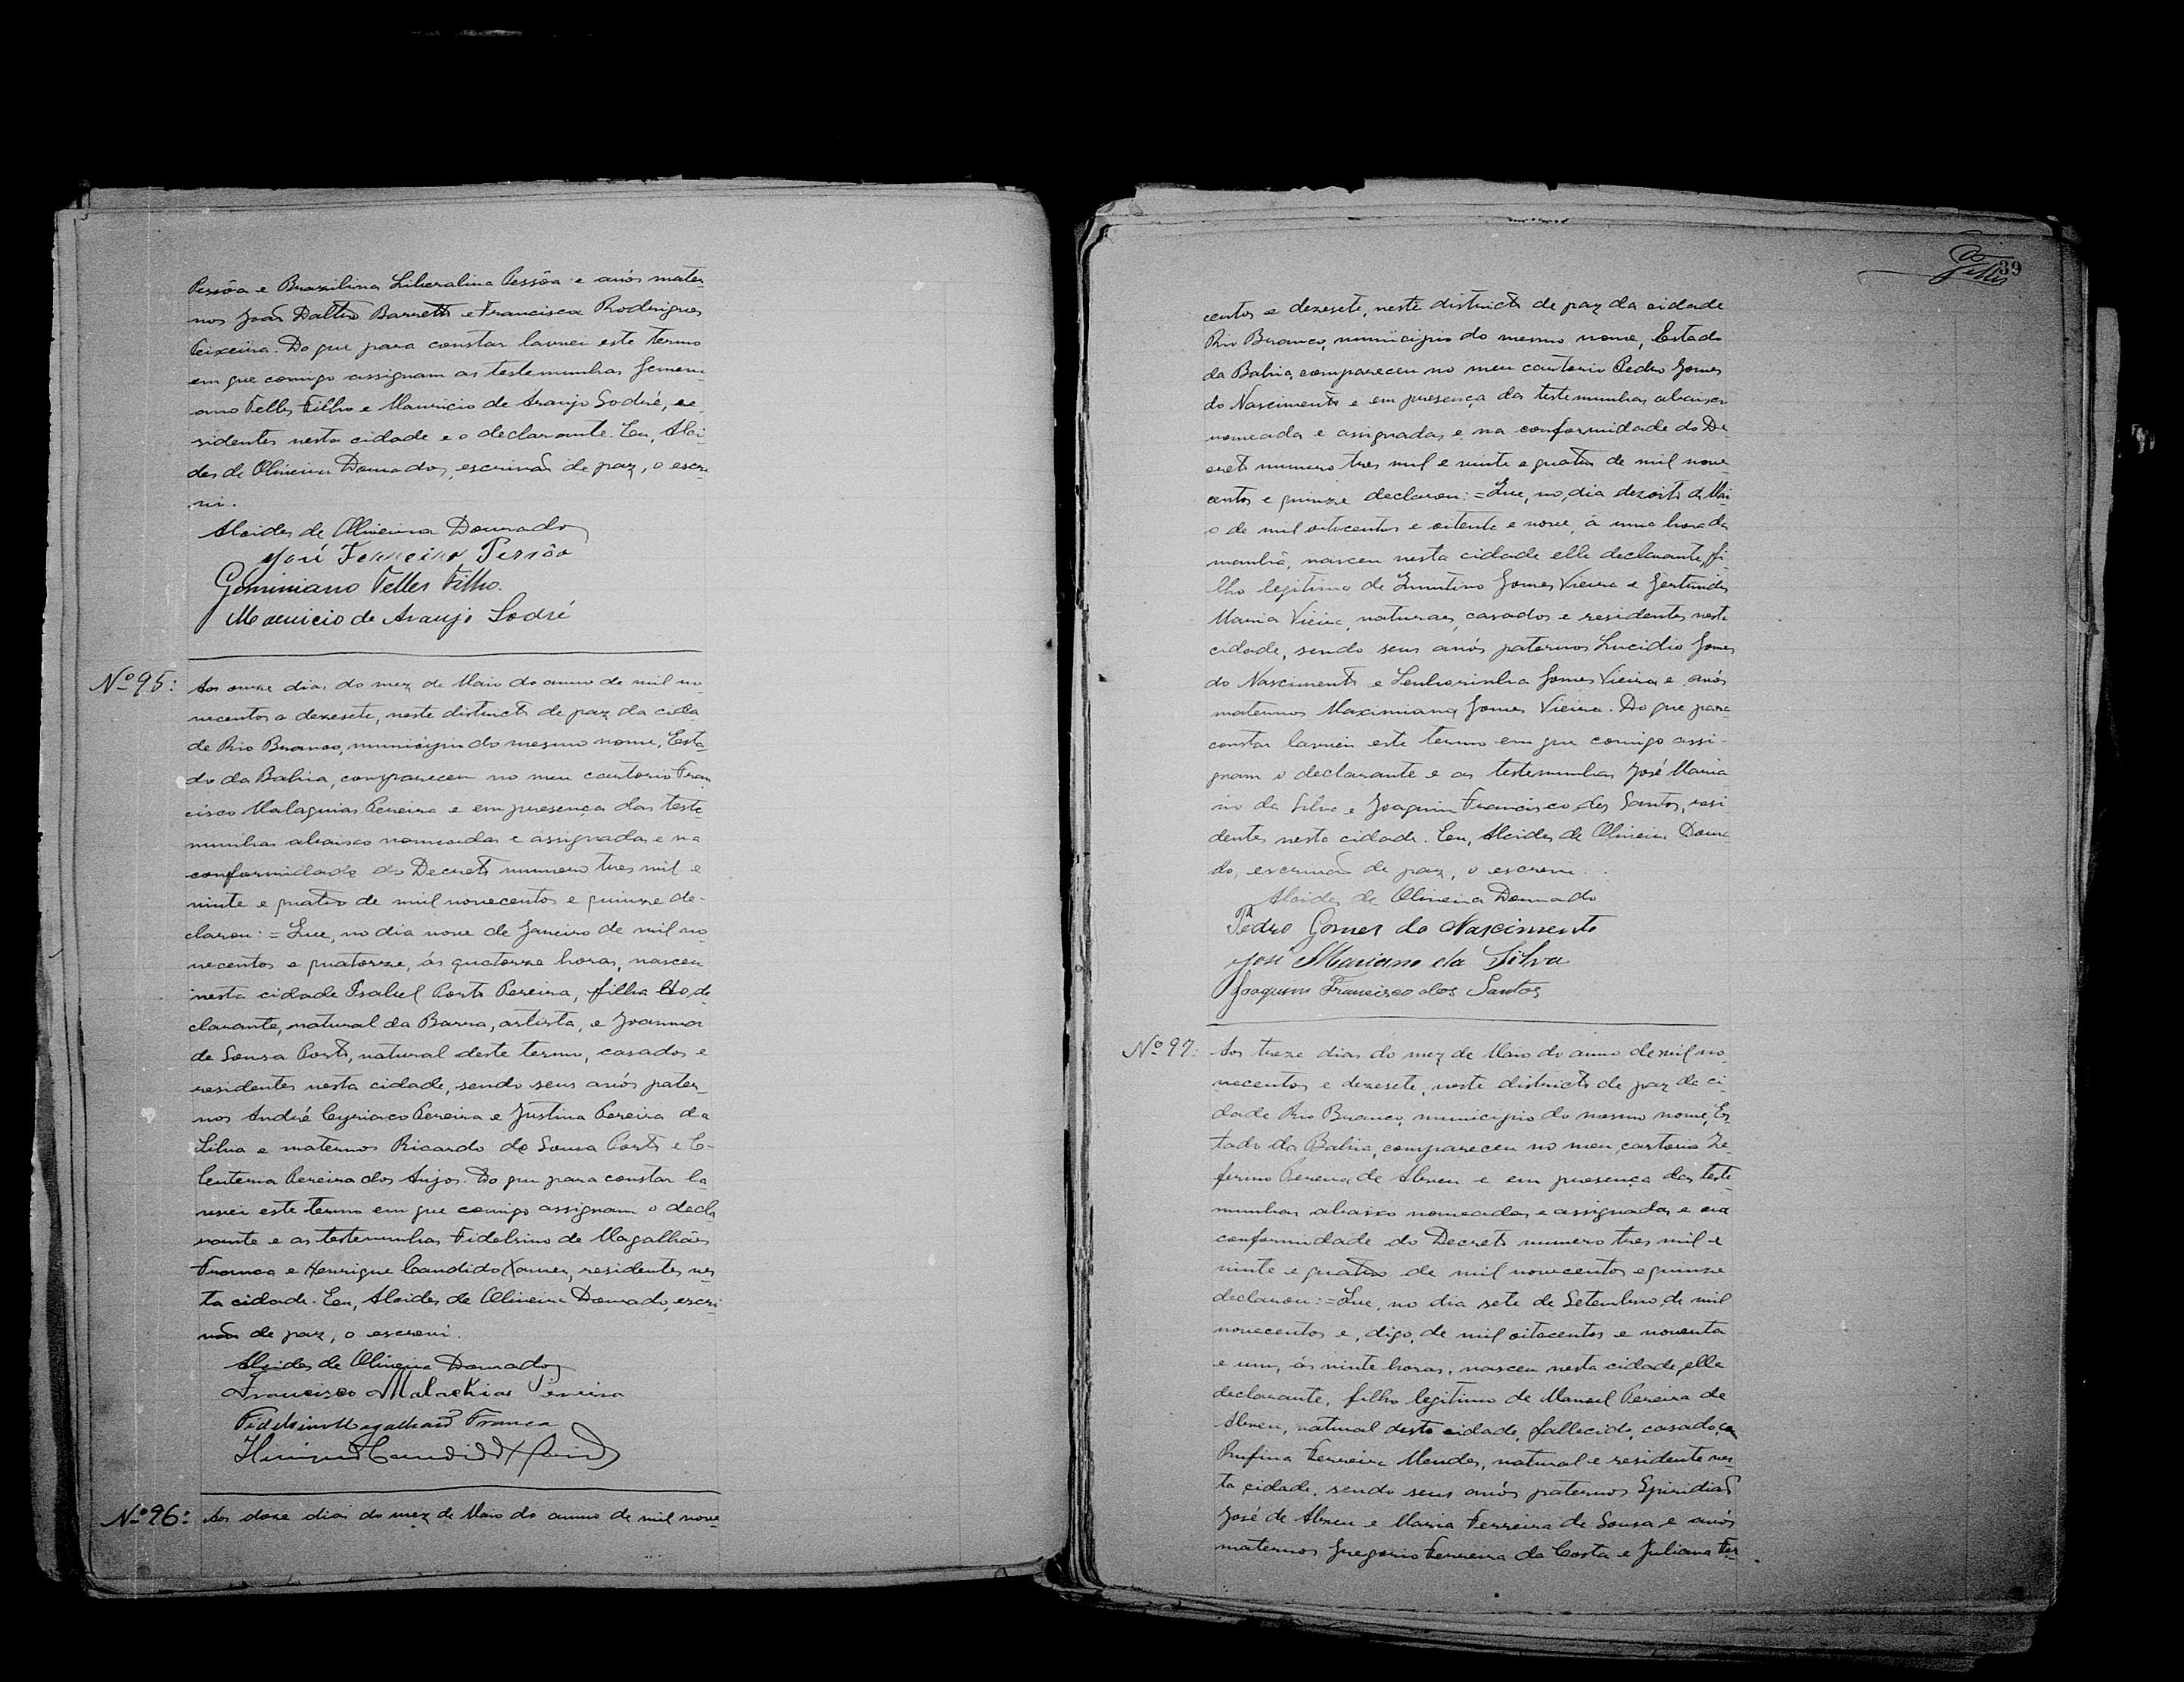 Pessôa e Brazilina Liberalina Pessôa e avós mater
nos João Daltro Barretto e Francisca Rodrigues
Teixeira. Do que para constar lavrei este termo
em que comigo assignam as testemunhas Gemeni
ano Telles Filho e Mauricio de Araujo Sodré, re-
sidentes nesta cidade e o declarante. Eu, Alci-
des de Oliveira Dourado, escrivão de paz, o escre
vi.
Alcides de Oliveira Dourado
José Ferreira Pessôa
Geminiano Telles Filho.
Mauricio de Araujo Sodré
Nº 95: Aos onze dias do mez de Maio do anno de mil no-
vecentos e dezesete, neste districto de paz da cida
de Rio Branco, municipio do mesmo nome, Esta-
do da Bahia, compareceu no meu cartorio Fran
cisco Malaquias Pereira e em presença das teste
munhas abaixo nomeadas e assignadas e na
conformidade do Decreto numero tres mil e
vinte e quatro de mil novecentos e quinze de-
clarou: = Que, no dia nove de Janeiro de mil no-
vecentos e quatorze, ás quatorze horas, nasceu
nesta cidade Isabel Porto Pereira, filha do de
clarante, natural da Barra, artista, e Joanna
de Sousa Porto, natural deste termo, casados e
residentes nesta cidade, sendo seus avós pater-
nos André Cyriaco Pereira e Justina Pereira da
Silva e maternos Ricardo de Sousa Porto e
Pereira dos Anjos. Do que para constar la-
vrei este termo em que comigo assignam o decla
rante e as testemunhas Fidelsino de Magalhães
Franca e Henrique Candido Xavier, residentes nes
ta cidade. Eu, Alcides de Oliveira Dourado, escri
vão de paz, o escrevi.
Alcides de Oliveira Dourado
Francisco Malachias Pereira
Fidelsino Magalhães Franca
Henrique Candido Xavier
Nº 96: Aos doze dias do mez de Maio do anno de mil nove-
39
centos e dezesete, neste districto de paz da cidade
Rio Branco, municipio do mesmo nome, Estado
da Bahia, compareceu no meu cartorio Pedro Gomes
do Nascimento e em presença das testemunhas abaixo
nomeada e assignadas e na conformidade do De
creto numero tres mil e vinte e quatro de mil nove
centos e quinze declarou: = Que, no dia dezoito de Mai
o de mil oitocentos e oitenta e nove, á uma hora da
manhã, nasceu nesta cidade elle declarante, fi-
lho legitimo de Quintino Gomes Vieira e Gertrudes
Maria Vieira, naturaes, casados e residentes nesta
cidade, sendo seus avós paternos Lucidio Gomes
do Nascimento e Senhorinha Gomes Vieira e avós
maternos Maximiana Gomes Vieira. Do que para
constar lavrei este termo em que comigo assi-
gnam o declarante e as testemunhas José Maria
no da Silva e Joaquim Francisco dos Santos, resi
dentes nesta cidade. Eu, Alcides de Oliveira Doura
do, escrivão de paz, o escrevi.
Alcides de Oliveira Dourado
Pedro Gomes do Nascimento
José Mariano da Silva
Joaquim Francisco dos Santos
Nº 97: Aos treze dias do mez de Maio do anno de mil no-
vecentos e dezesete, neste districto de paz da ci
dade Rio Branco, municipio do mesmo nome, Es
tado da Bahia, compareceu no meu cartorio Ze-
ferino Pereira de Abreu e em presença das teste-
munhas abaixo nomeadas e assignadas e na
conformidade do Decreto numero tres mil e
vinte e quatro de mil novecentos e quinze
declarou: = Que, no dia sete de Setembro de mil
novecentos e, digo, de mil oitocentos e noventa
e um, ás vinte horas, nasceu nesta cidade, elle
declarante, filho legitimo de Manoel Pereira de
Abreu, natural desta cidade, fallecido, casado com
Rufina Ferreira Mendes, natural e residente nes-
ta cidade, sendo seus avós paternos Espiridião
José de Abreu e Maria Ferreira de Sousa e avós
maternos Gregorio Ferreira da Costa e Juliana Fer-